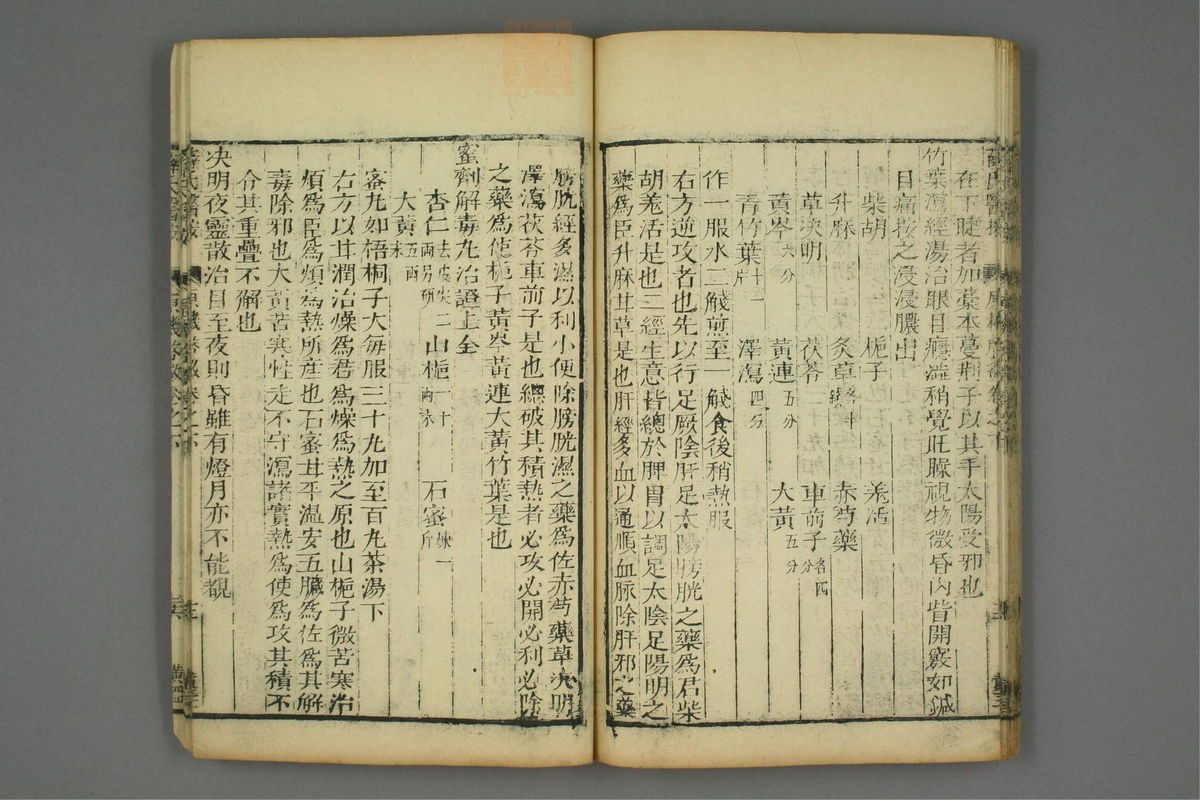 在下睫者加藁本蔓荆子以其手太陽受邪也
竹葉瀉經湯治眼目癮澁稍覺眊矂視物微昏内眥開竅如鍼
目痛按之浸浸膿出
柴胡 梔子 羗活
升麻 炙草各五錢 赤芍藥
草决明 茯苓 車前子各四分
黃岑六分 黃連五分 大黃五分
青竹葉十二片 澤瀉四分
作一服水二餞煎至一餞食後稍熱服
右方逆攻者也先以行足厥陰肝足太陽膀胱之藥爲君柴
胡羗活是也二經生意皆總於脾胃以調足太陰足陽明之
藥爲臣升麻甘草是也肝經多血以通順血脉除肝邪之藥
膀胱經多濕以利小便除膀胱濕之藥爲佐赤芍藥草决明
澤瀉茯苓車前子是也總破其積熱者必攻必開必利必除
之藥爲使梔子黃岑黃連大黃竹葉是也
蜜劑解毒丸治證上仝
杏仁去皮尖二兩另研 山梔十兩末 石蜜煉一斤
大黃五兩末
蜜丸如梧桐子大每服三十丸加至百丸茶湯下
右方以甘潤治燥爲君爲燥爲熱之原也山梔子微苦寒治
煩爲臣爲煩爲熱所產也石蜜甘平溫安五臟爲佐爲其解
毒除邪也大黃苦寒性走不守瀉諸實熱爲使爲攻其積不
令其重疊不解也
决明夜靈散治目至夜則昏雖有燈月亦不能覩